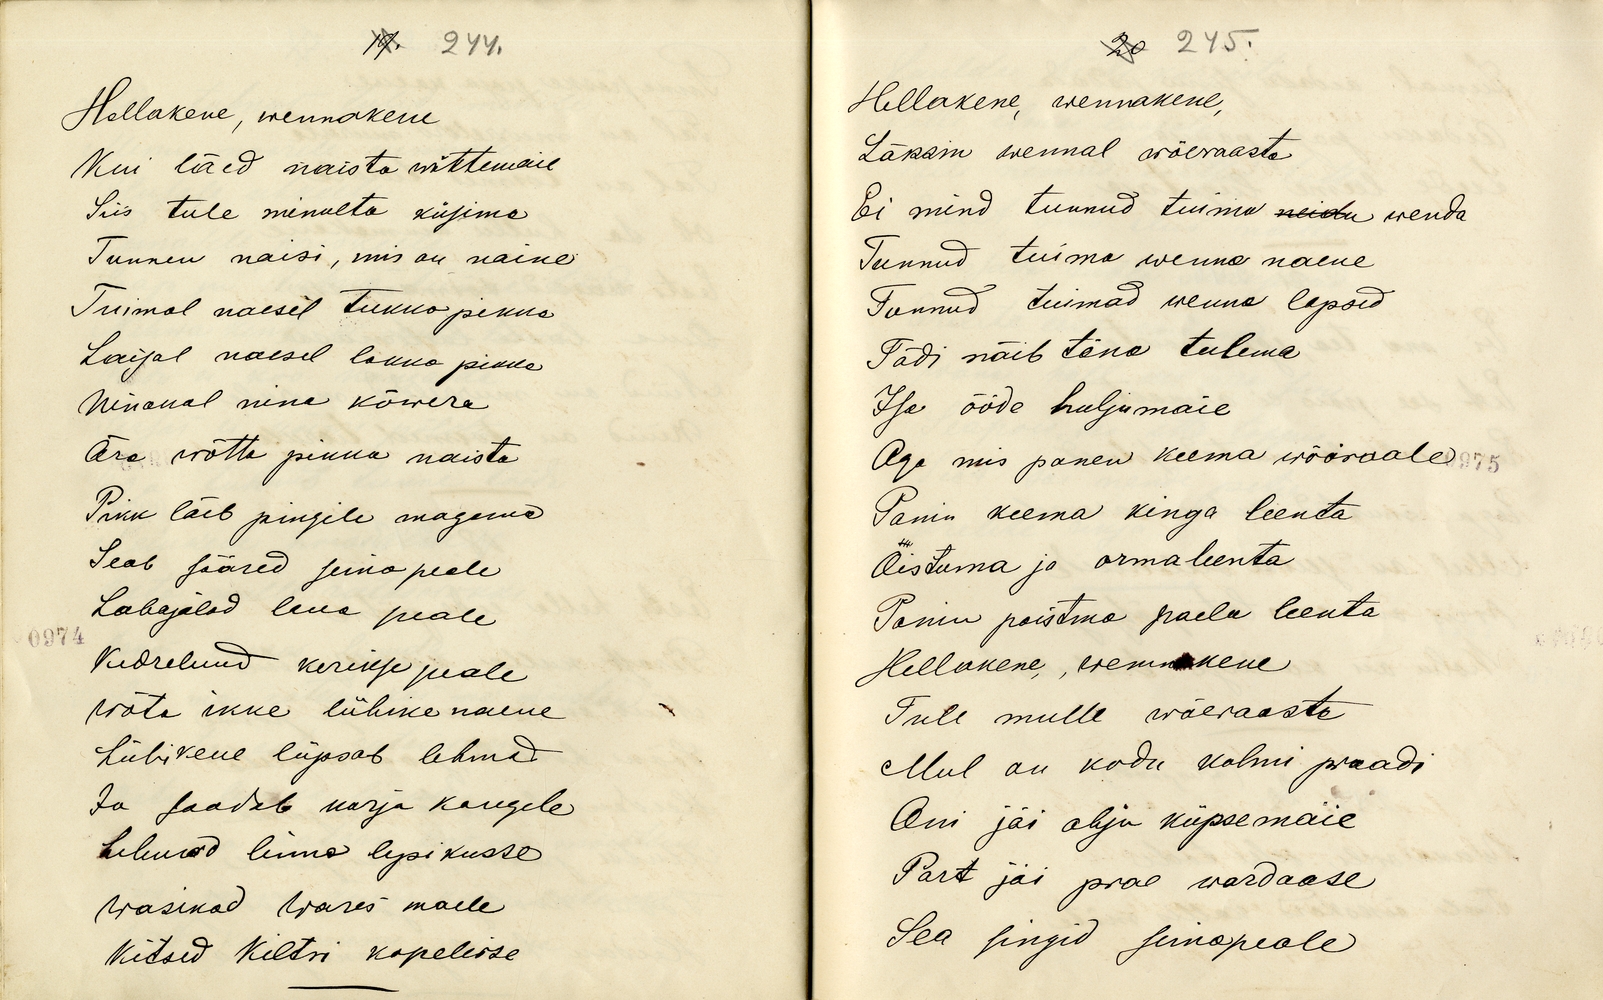 19. 244.
Hellakene, wennakene
Kui läed naista wõttemaie
Siis tule minulta küsima
Tunnen naisi, mis on naine
Tuimal naesel tukka pikka
Laisal naesel lakka pikka
Ninakal nina kõwera
Ära wõtta pikka naista
Pikk läeb pingile magama
Seab sääred seina peale
Labajalad laua peale
Kedreluud kerikse peale
Wõta ikke lühike naene
Lühikene lüpsab lehmad
Ja saadab karja kaugele
Lehmad linna lepikusse
Wasikad Wares maele
Kitsed Kiltri kopelisse
0974
20 245.
Hellakene, wennakene,
Läksin wennal wõeraasta
Ei mind tunnud tuima neidu wenda
Tunnud tuima wenna naene
Tunnud tuimad wenna lapsed
Tädi näib täna tulema
Isa ööde huljumaie
Aga mis panen keema wõõraale
Panin keema kinga leenta
Õistuma ja orma leenta
Panin paistma paela leenta
Hellakene, wennakene
Tule mulle wõeraasta
Mul on kodu kolmi praadi
Ani jäi ahju küpsemäie
Part jäi prae wardaase
Sea singid seinapeale
0975